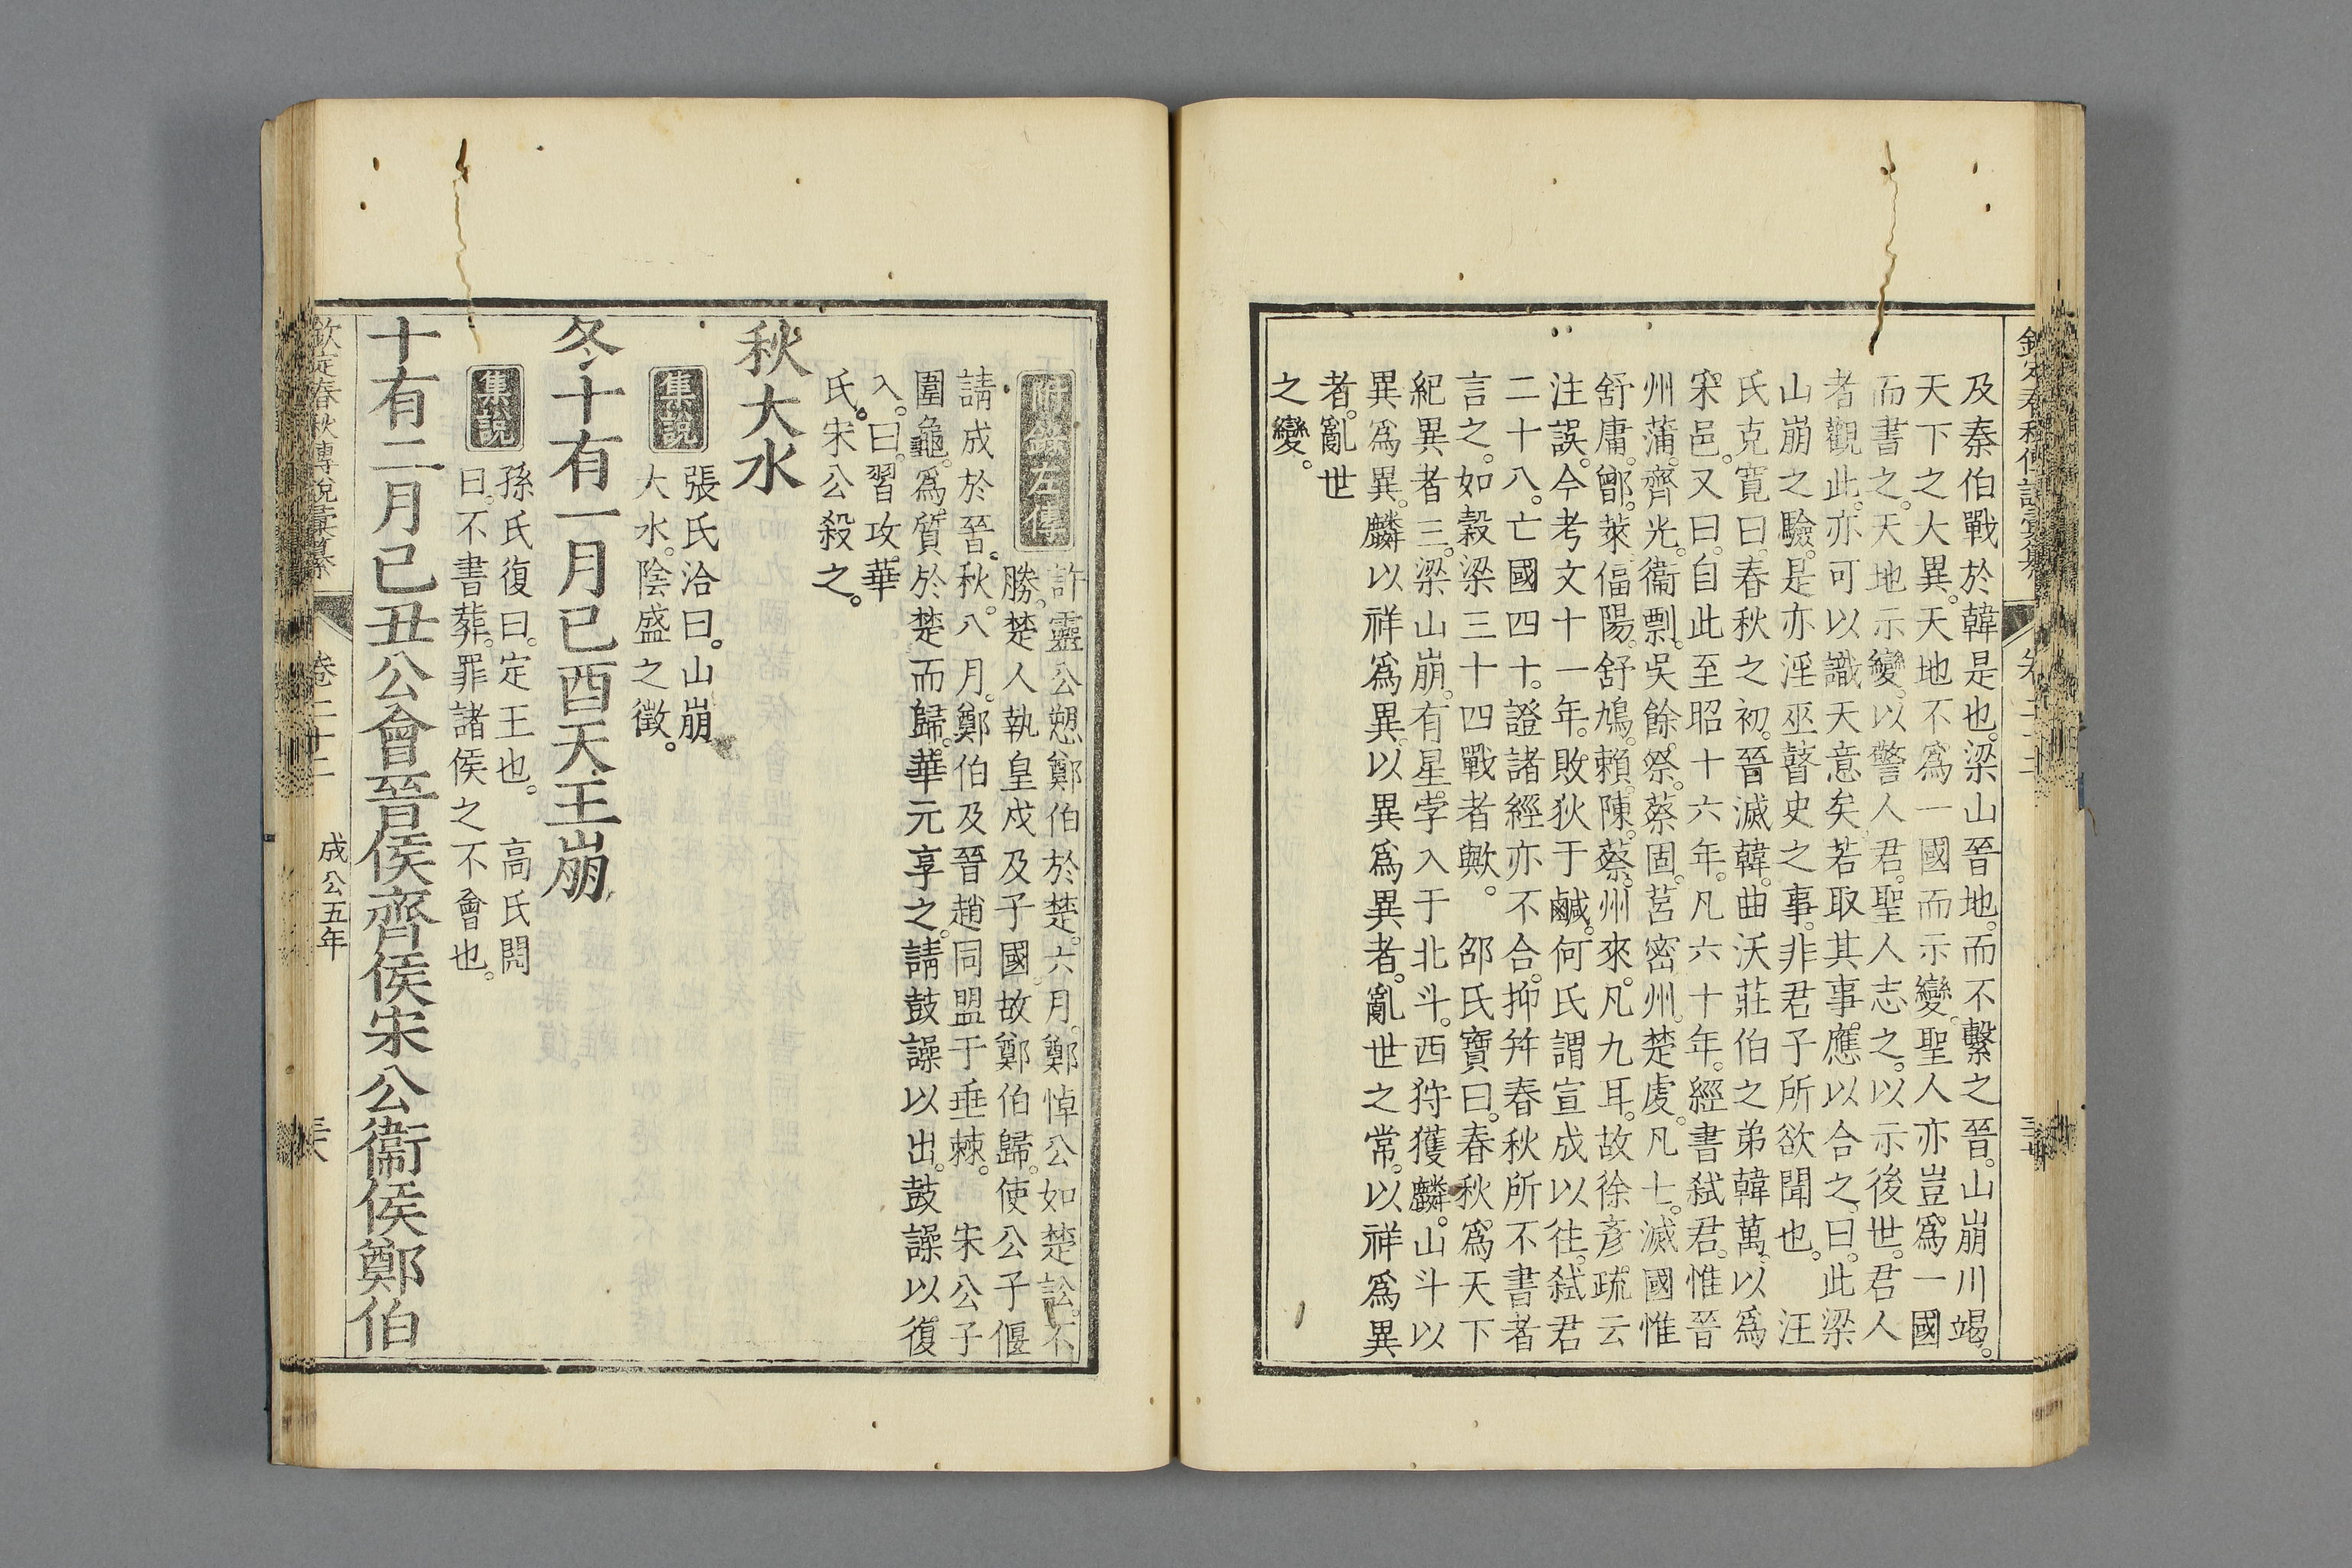 及秦伯戰於韓是也。梁山晉地。而不繫之晉。山崩川竭。
天下之大異。天地不爲一國而示變。聖人亦豈爲一國
而書之。天地示變。以警人君。聖人志之。以示後世。君人
者觀此。亦可以識天意矣。若取其事應以合之。曰。此梁
山崩之驗。是亦淫巫瞽史之事。非君子所欲聞也。 汪
氏克寬曰。春秋之初。晉滅韓。曲沃莊伯之弟韓萬。以爲
宋邑。又曰。自此至昭十六年。凡六十年。經書弑君。惟晉
州蒲。齊光。衞剽。吳餘祭。蔡固。莒密州。楚虔。凡七。滅國惟
舒庸。鄫。萊偪陽。舒鳩。賴。陳。蔡。州來。凡九耳。故徐彥疏云
注誤。今考文十一年。敗狄于鹹。何氏謂宣成以往。弑君
二十八。亡國四十。證諸經亦不合。抑幷春秋所不書者
言之。如穀梁三十四戰者歟。 邵氏寶曰。春秋爲天下
紀異者三。梁山崩。有星孛入于北斗。西狩獲麟。山斗以
異爲異。麟以祥爲異。以異爲異者。亂世之常。以祥爲異
者。亂世
之變。
附錄左傳
許靈公愬鄭伯於楚。六月。鄭悼公如楚訟。不
勝。楚人執皇戍及子國。故鄭伯歸。使公子偃
請成於晉。秋。八月。鄭伯及晉趙同盟于垂棘。 宋公子
圍龜。爲質於楚而歸。華元享之。請鼓譟以出。鼓譟以復
入。曰。習攻華
氏。宋公殺之。
秋大水
集說
張氏洽曰。山崩
大水。陰盛之徵。
冬十有一月己酉天王崩
集說
孫氏復曰。定王也。 高氏閌
曰。不書葬。罪諸侯之不會也。
十有二月己丑公會晉侯齊侯宋公衞侯鄭伯
欽定春秋傳說彙纂
卷二十二
成公五年